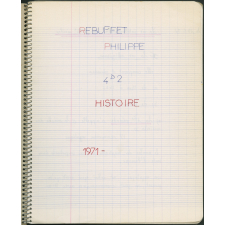 REBUFFET
PHILIPPE
4D2
HISTOIRE
1971-